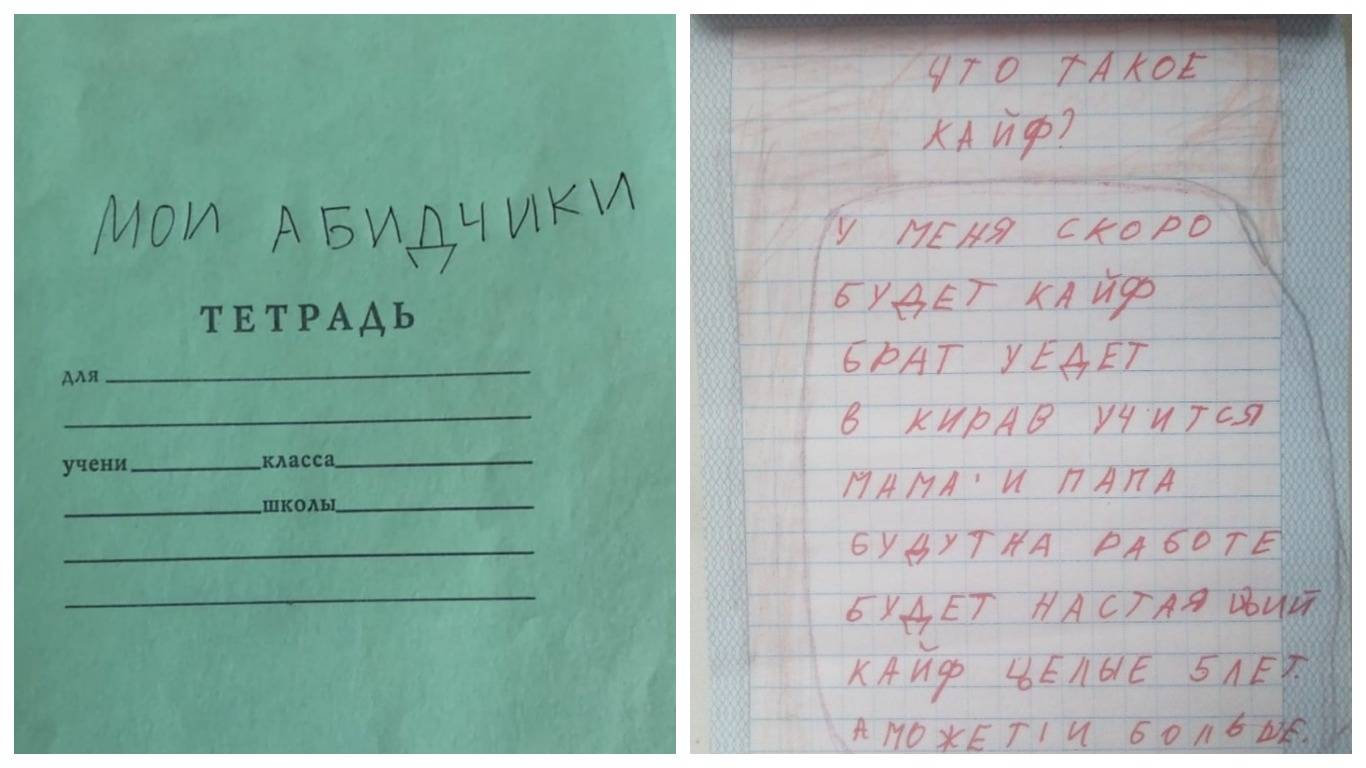 МОИ АБИДЧИКИ
ТЕТРАДЬ
для
учени класса
школы
ЧТО ТАКОЕ
КАЙФ?
У МЕНЯ СКОРО
БУДЕТ КАЙФ
БРАТ УЕДЕТ
В КИРАВ УЧИТСЯ
МАМА И ПАПА
БУДУТ НА РАБОТЕ
БУДЕТ НАСТАЯЩИЙ
КАЙФ ЦЕЛЫЕ 5 ЛЕТ.
А МОЖЕТ И БОЛЬШЕ.